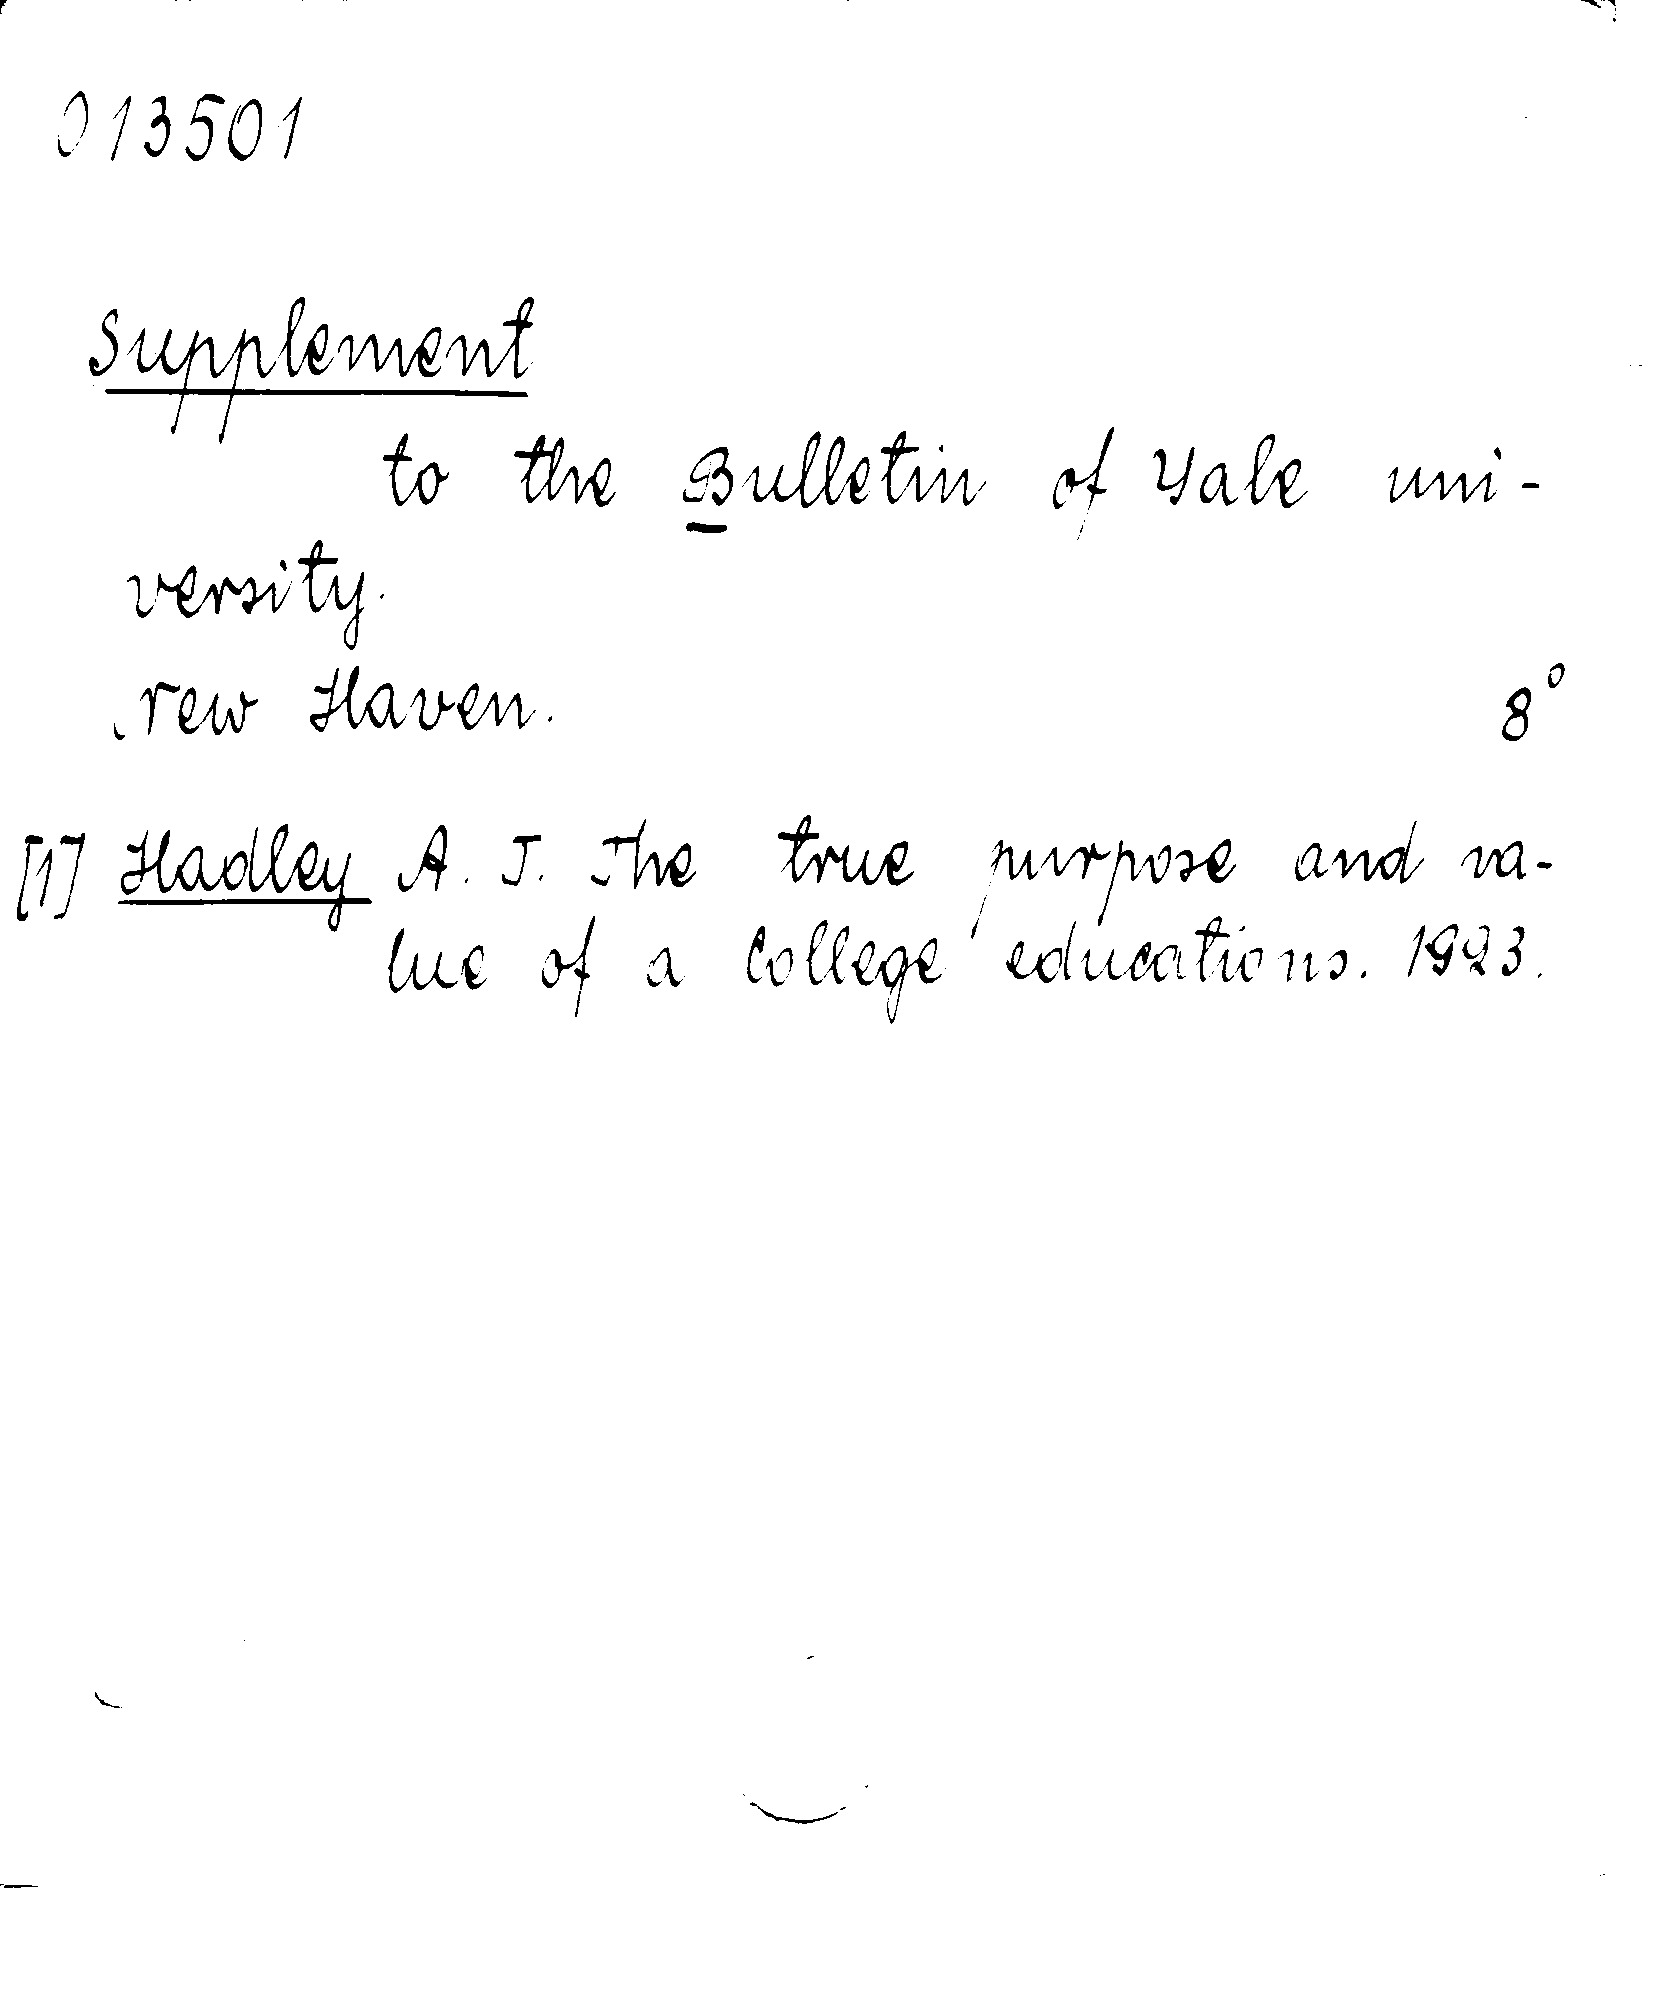 013501
Supplement
to the Bulletin of Yale uni-
versity.
New Haven. 8°
[1] Hadley A. T. The true purpose and va-
lue of a College educations. 1923.